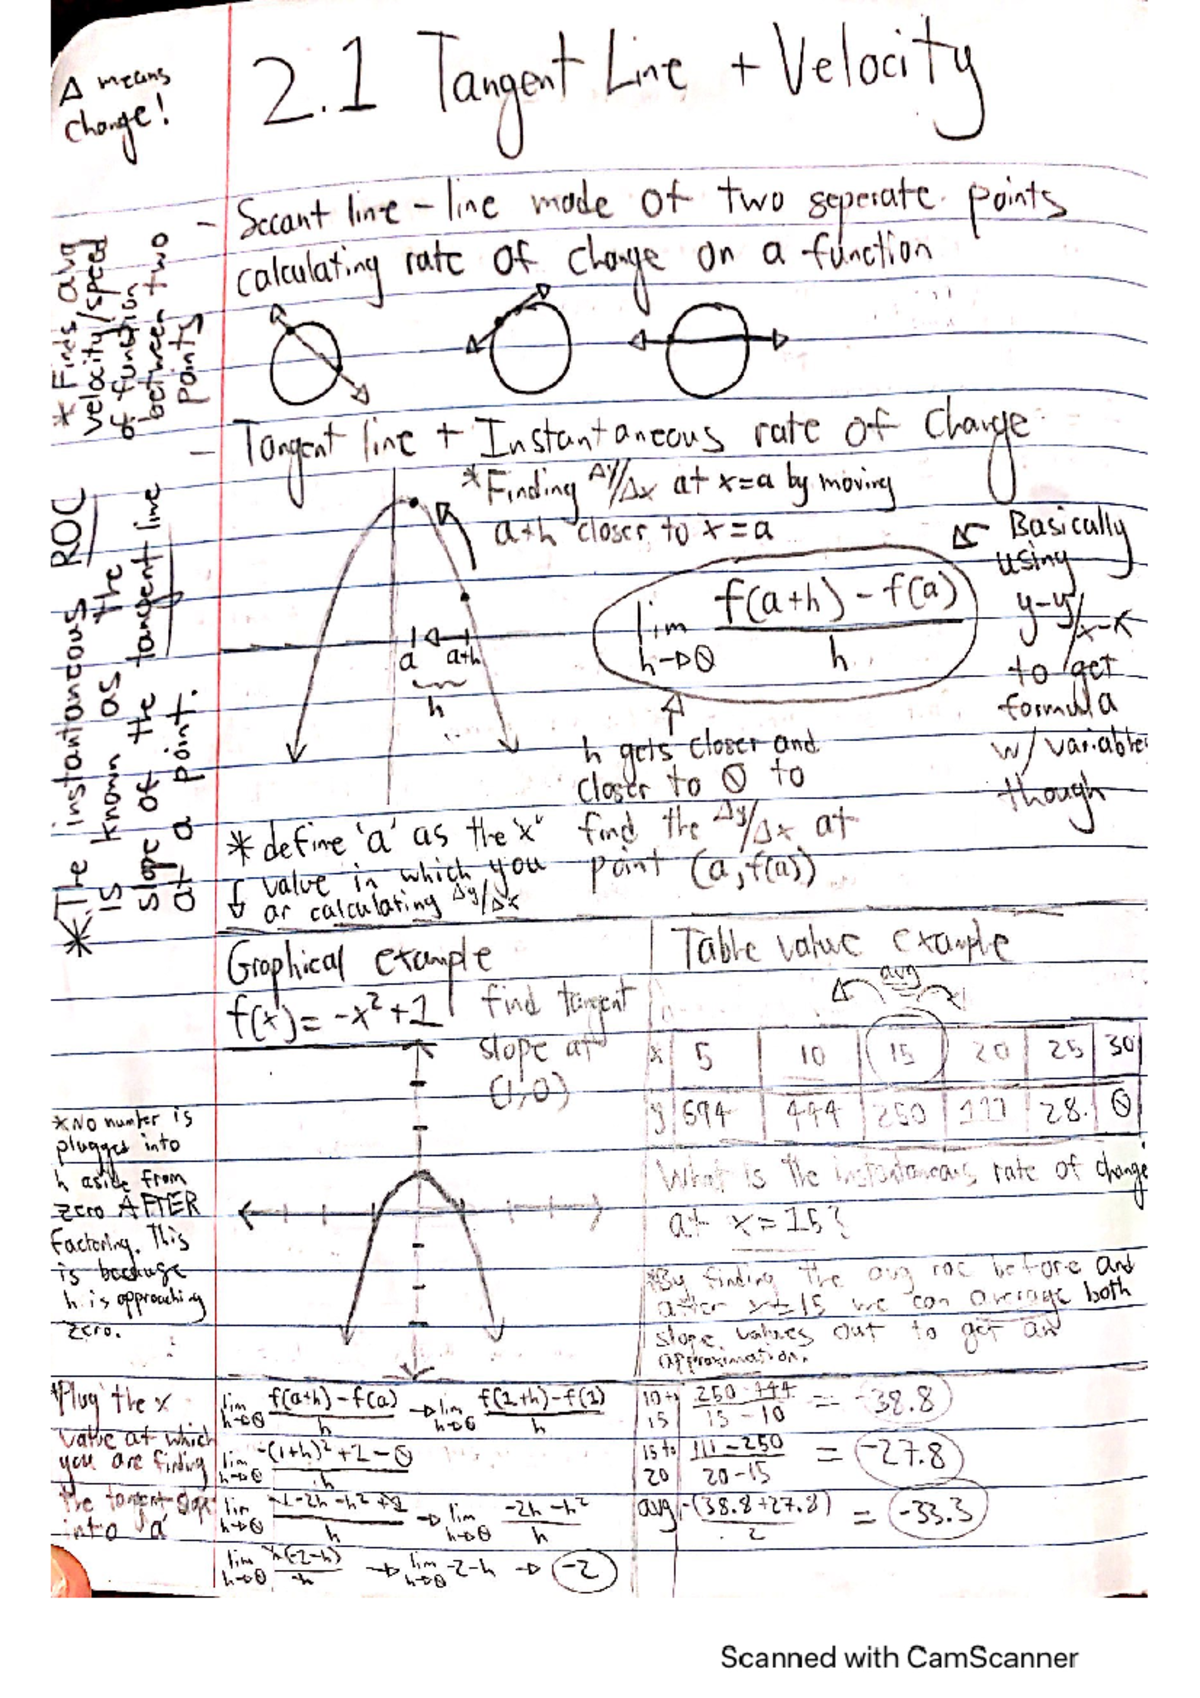 Δ means
change!
2.1 Tangent Line + Velocity
- Secant line - line made of two seperate points
calculating rate of change on a function
* Finds avg
velocity/speed
of function
between two
points
- Tangent line + Instantaneous rate of change
*Finding Δy/Δx at x=a by moving
a+h closer to x=a
a a+h
h
lim h→0 f(a+h)-f(a) / h
Basically
using
y-y/x-x
to get
formula
w/ variables
though
h gets closer and
closer to 0 to
find the Δy/Δx at
point (a,f(a))
* The instantaneous ROC
is known as the
slope of the tangent line
at a point.
* define 'a' as the "x"
value in which you
ar calculating Δy/Δx
Graphical example
f(x)= -x²+1
find tangent
slope at
(1,0)
*No number is
plugged into
h aside from
zero AFTER
factoring. This
is because
h is approaching
zero.
*Plug the x
value at which
you are finding
the tangent slope
into 'a'
lim h→0 f(a+h)-f(a) / h → lim h→0 f(1+h)-f(1) / h
lim h→0 -(1+h)²+1-0 / h
lim h→0 -1-2h-h²+1 / h → lim h→0 -2h-h² / h
lim h→0 h(-2-h) / h → lim h→0 -2-h → -2
Table value example
avg
x 5 10 15 20 25 30
y 694 444 250 111 28 0
What is the instantaneous rate of change
at x=15?
*By finding the avg roc before and
after x=15 we can average both
slope values out to get an
approximation.
10 to 15 250-444 / 15-10 = -38.8
15 to 20 111-250 / 20-15 = -27.8
avg -(38.8+27.8) / 2 = -33.3
Scanned with CamScanner